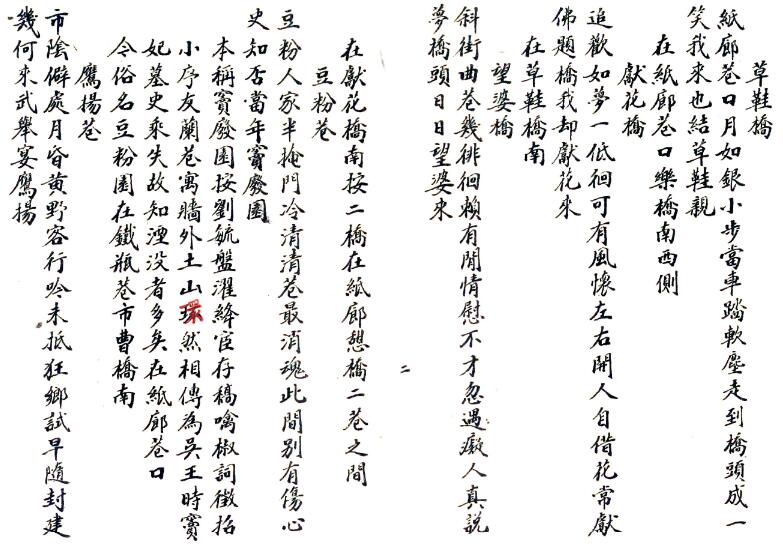 草鞋橋
紙廊巷口月如銀小步當車踏軟塵走到橋頭成一
笑我來也結草鞋親
在紙廊巷口樂橋南西側
獻花橋
追歡如夢一低徊可有風懷左右開人自借花常獻
佛題橋我却獻花來
在草鞋橋南
望婆橋
斜街曲巷幾徘徊賴有閒情慰不才忽遇癡人真說
夢橋頭日日望婆來
二
在獻花橋南按二橋在紙廊憩橋二巷之間
豆粉巷
豆粉人家半掩門冷清清巷最消魂此間別有傷心
史知否當年竇廢園
本稱竇廢園按劉毓盤濯絳宦存稿噙椒詞徵招
小序友蘭巷寓牆外土山環然相傳為吳王時竇
妃墓史乘失故知湮没者多矣在紙廊巷口
令俗名豆粉園在鐵瓶巷市曹橋南
鷹揚巷
市陰僻處月昏黃野客行吟未抵狂鄉試早隨封建
幾何來武舉宴鷹揚